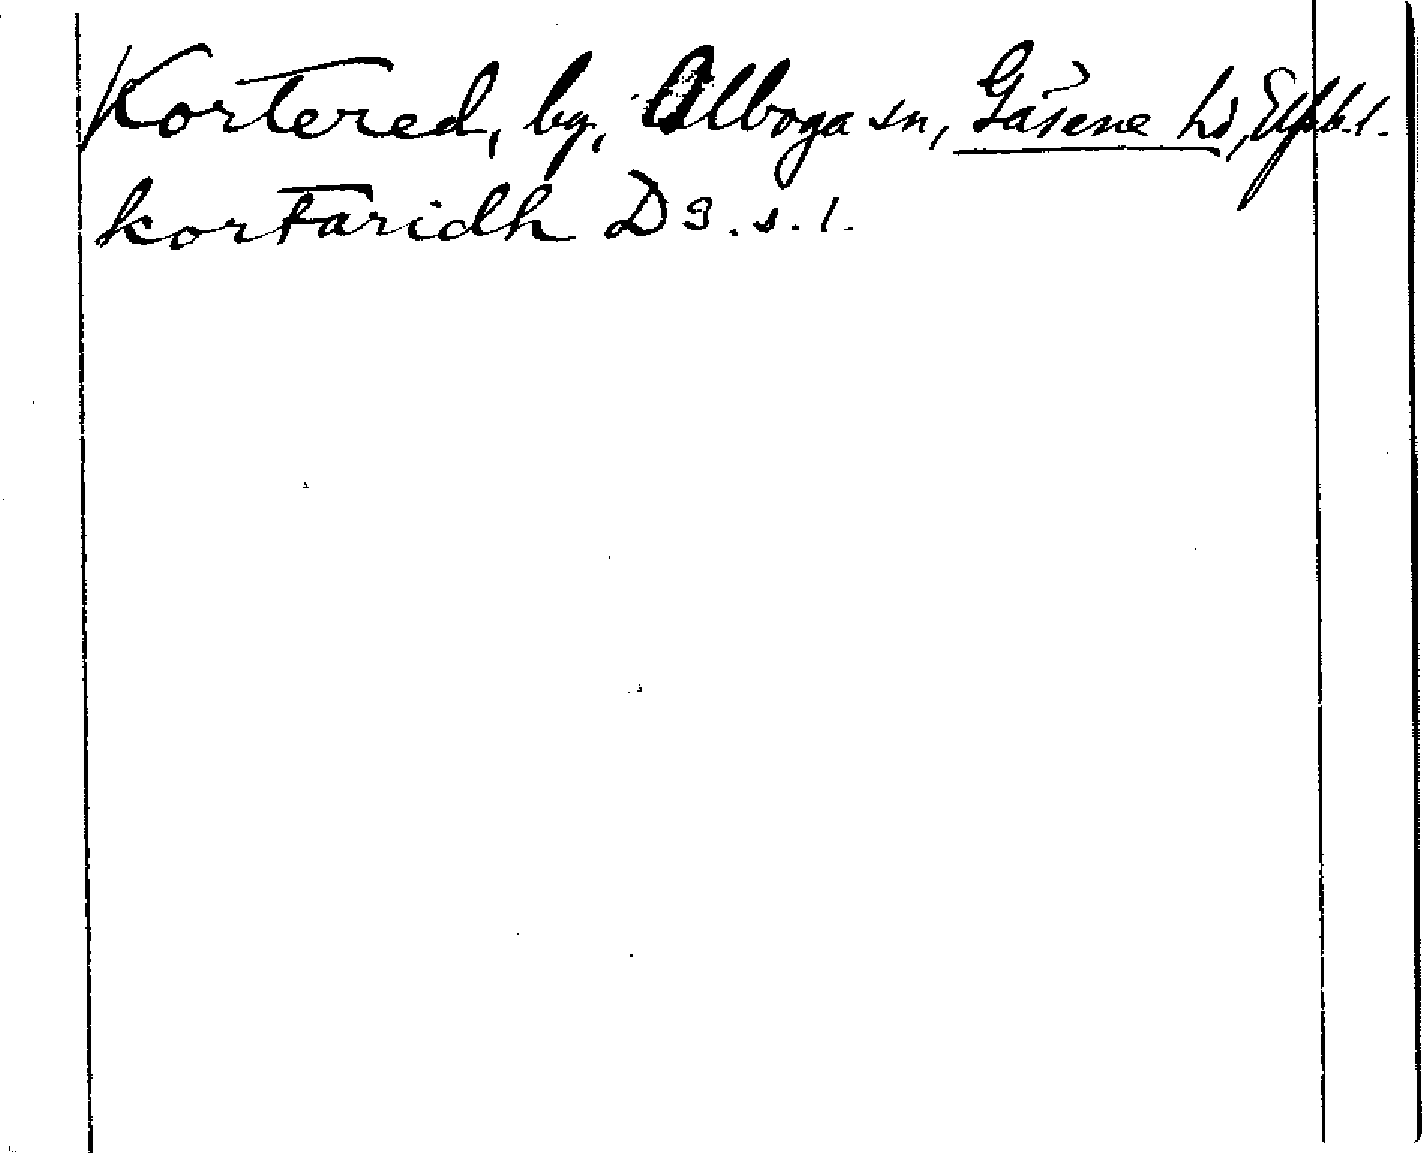 Kortered, by, Alboga sn, Gäsene hd, Elfsb. l.
kortaridh D 3. s. 1.